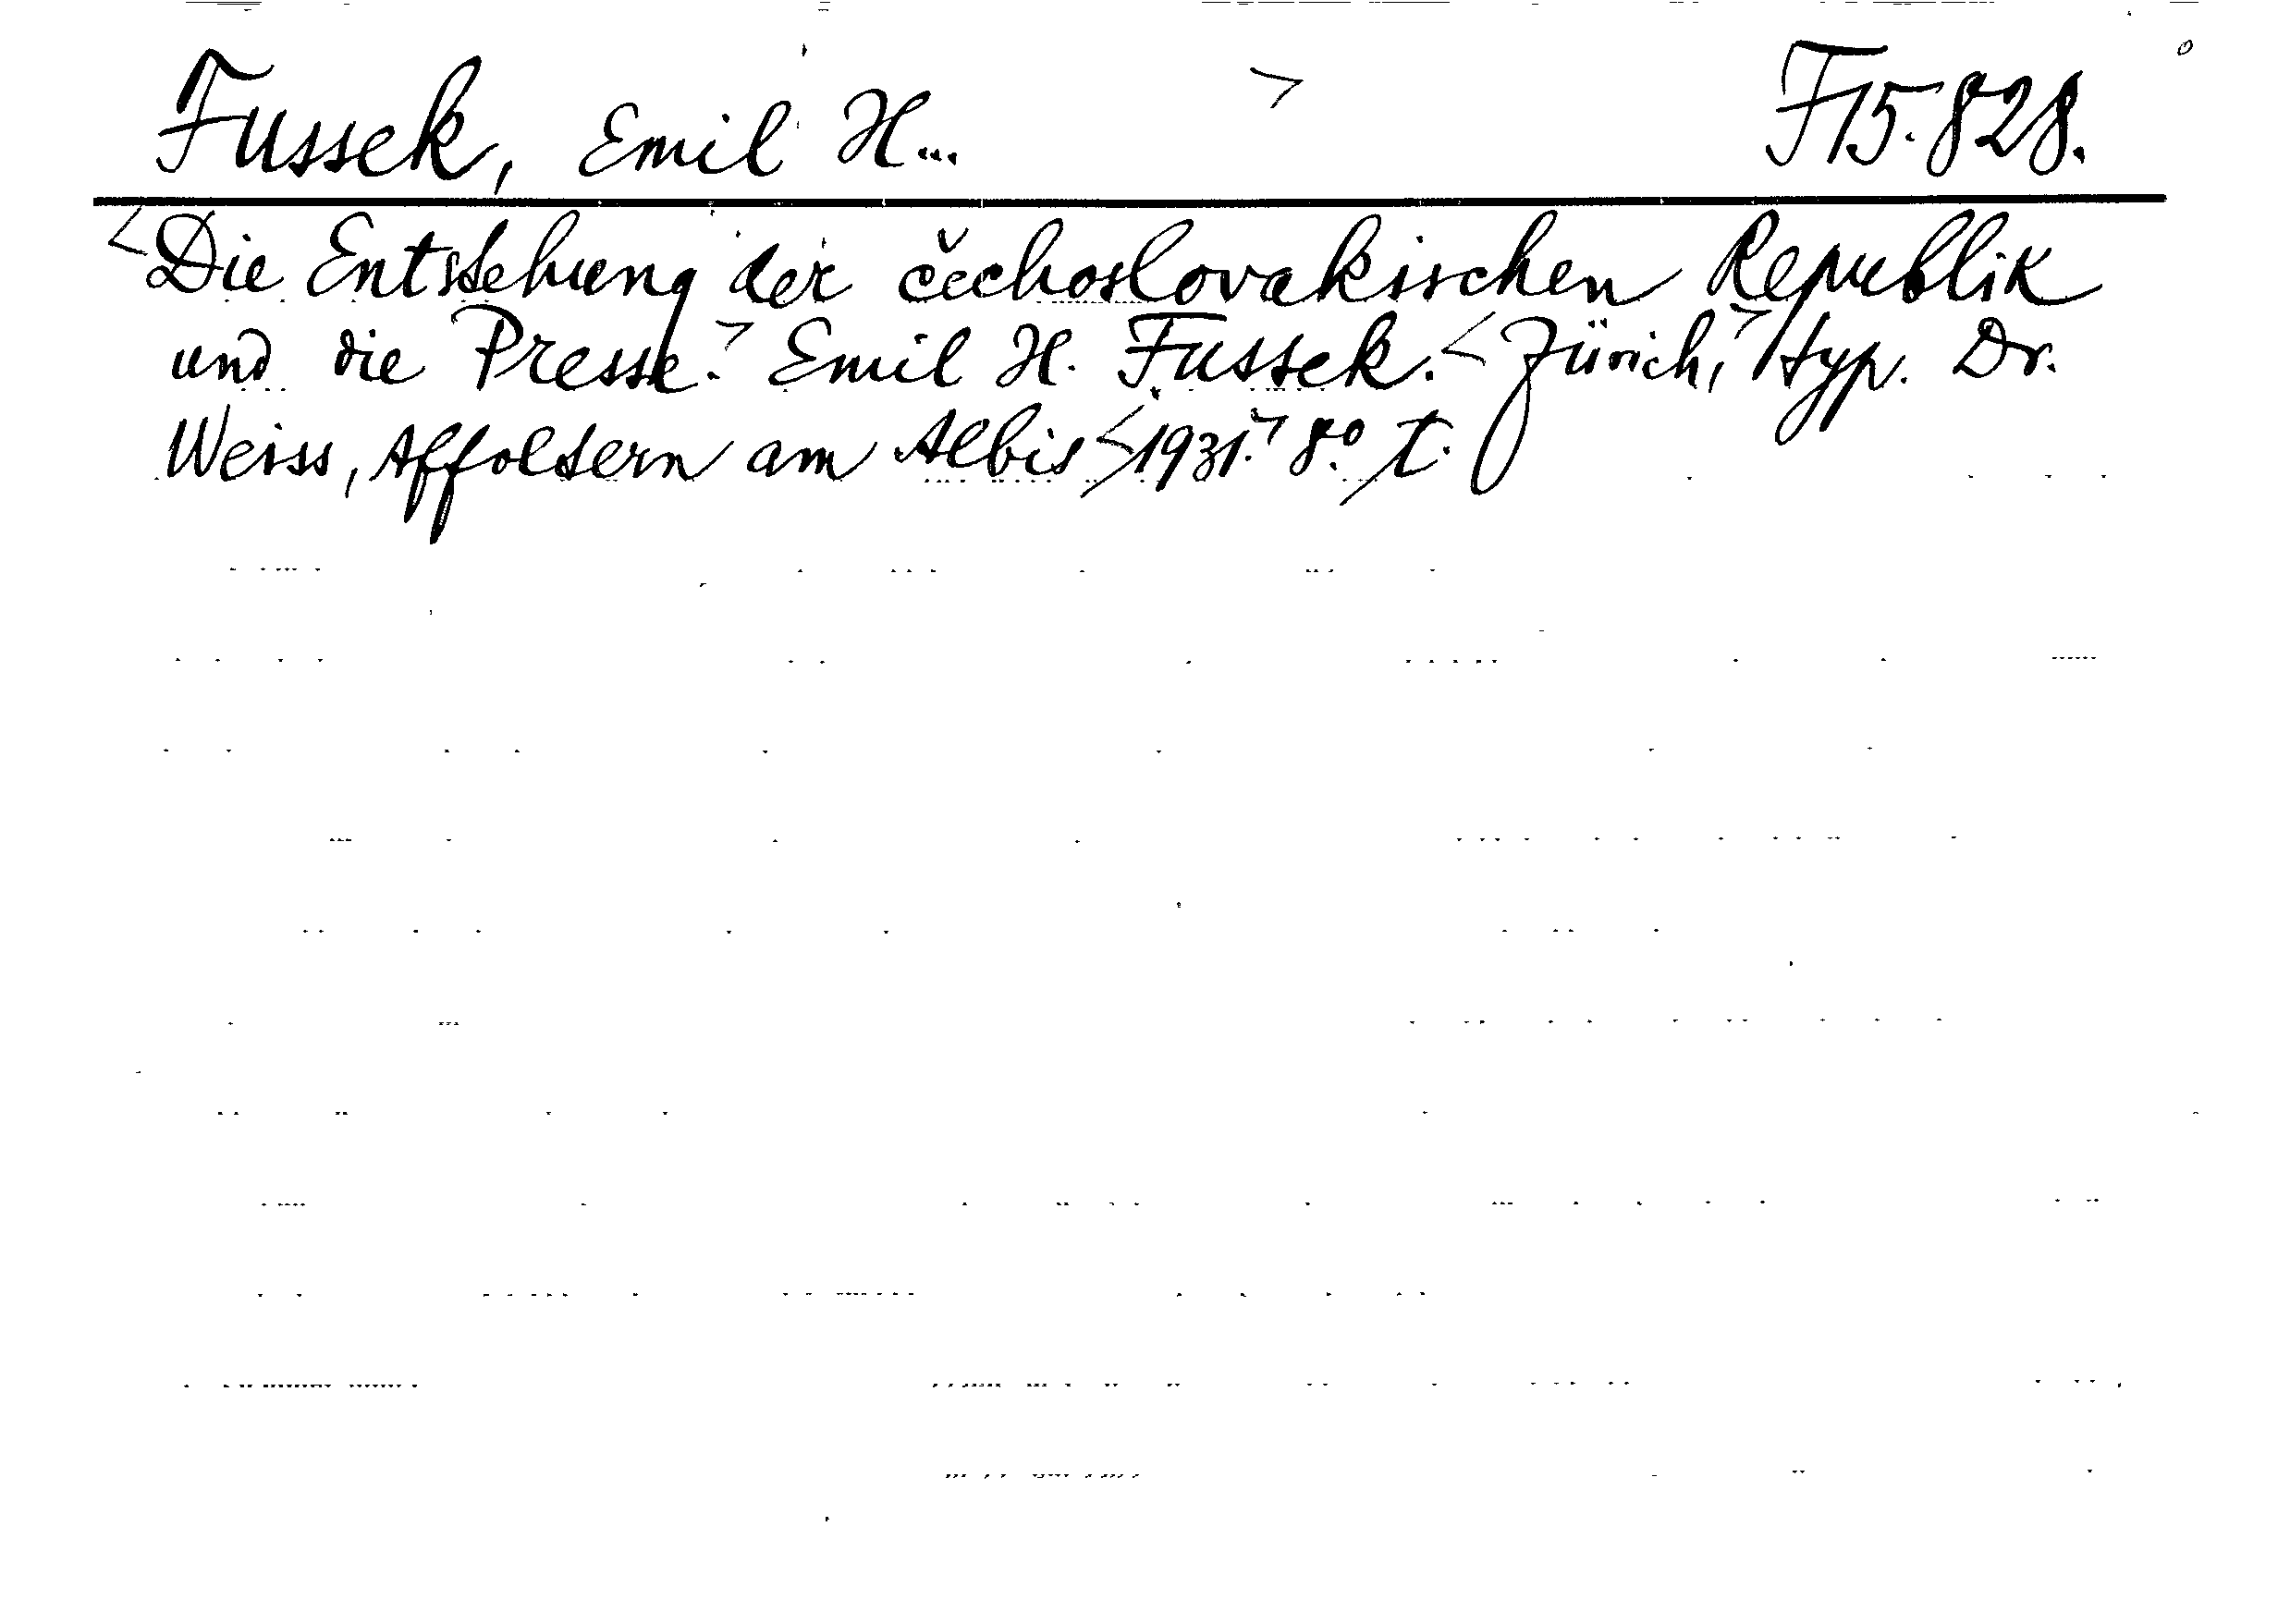 Fussek, Emil H... > F 15.828.
<Die Entstehung der čechoslovakischen Republik
und die Presse.> Emil H. Fussek. <Zürich,> typ. Dr.
Weiss, Affoltern am Albis <1931.> 8.° t.